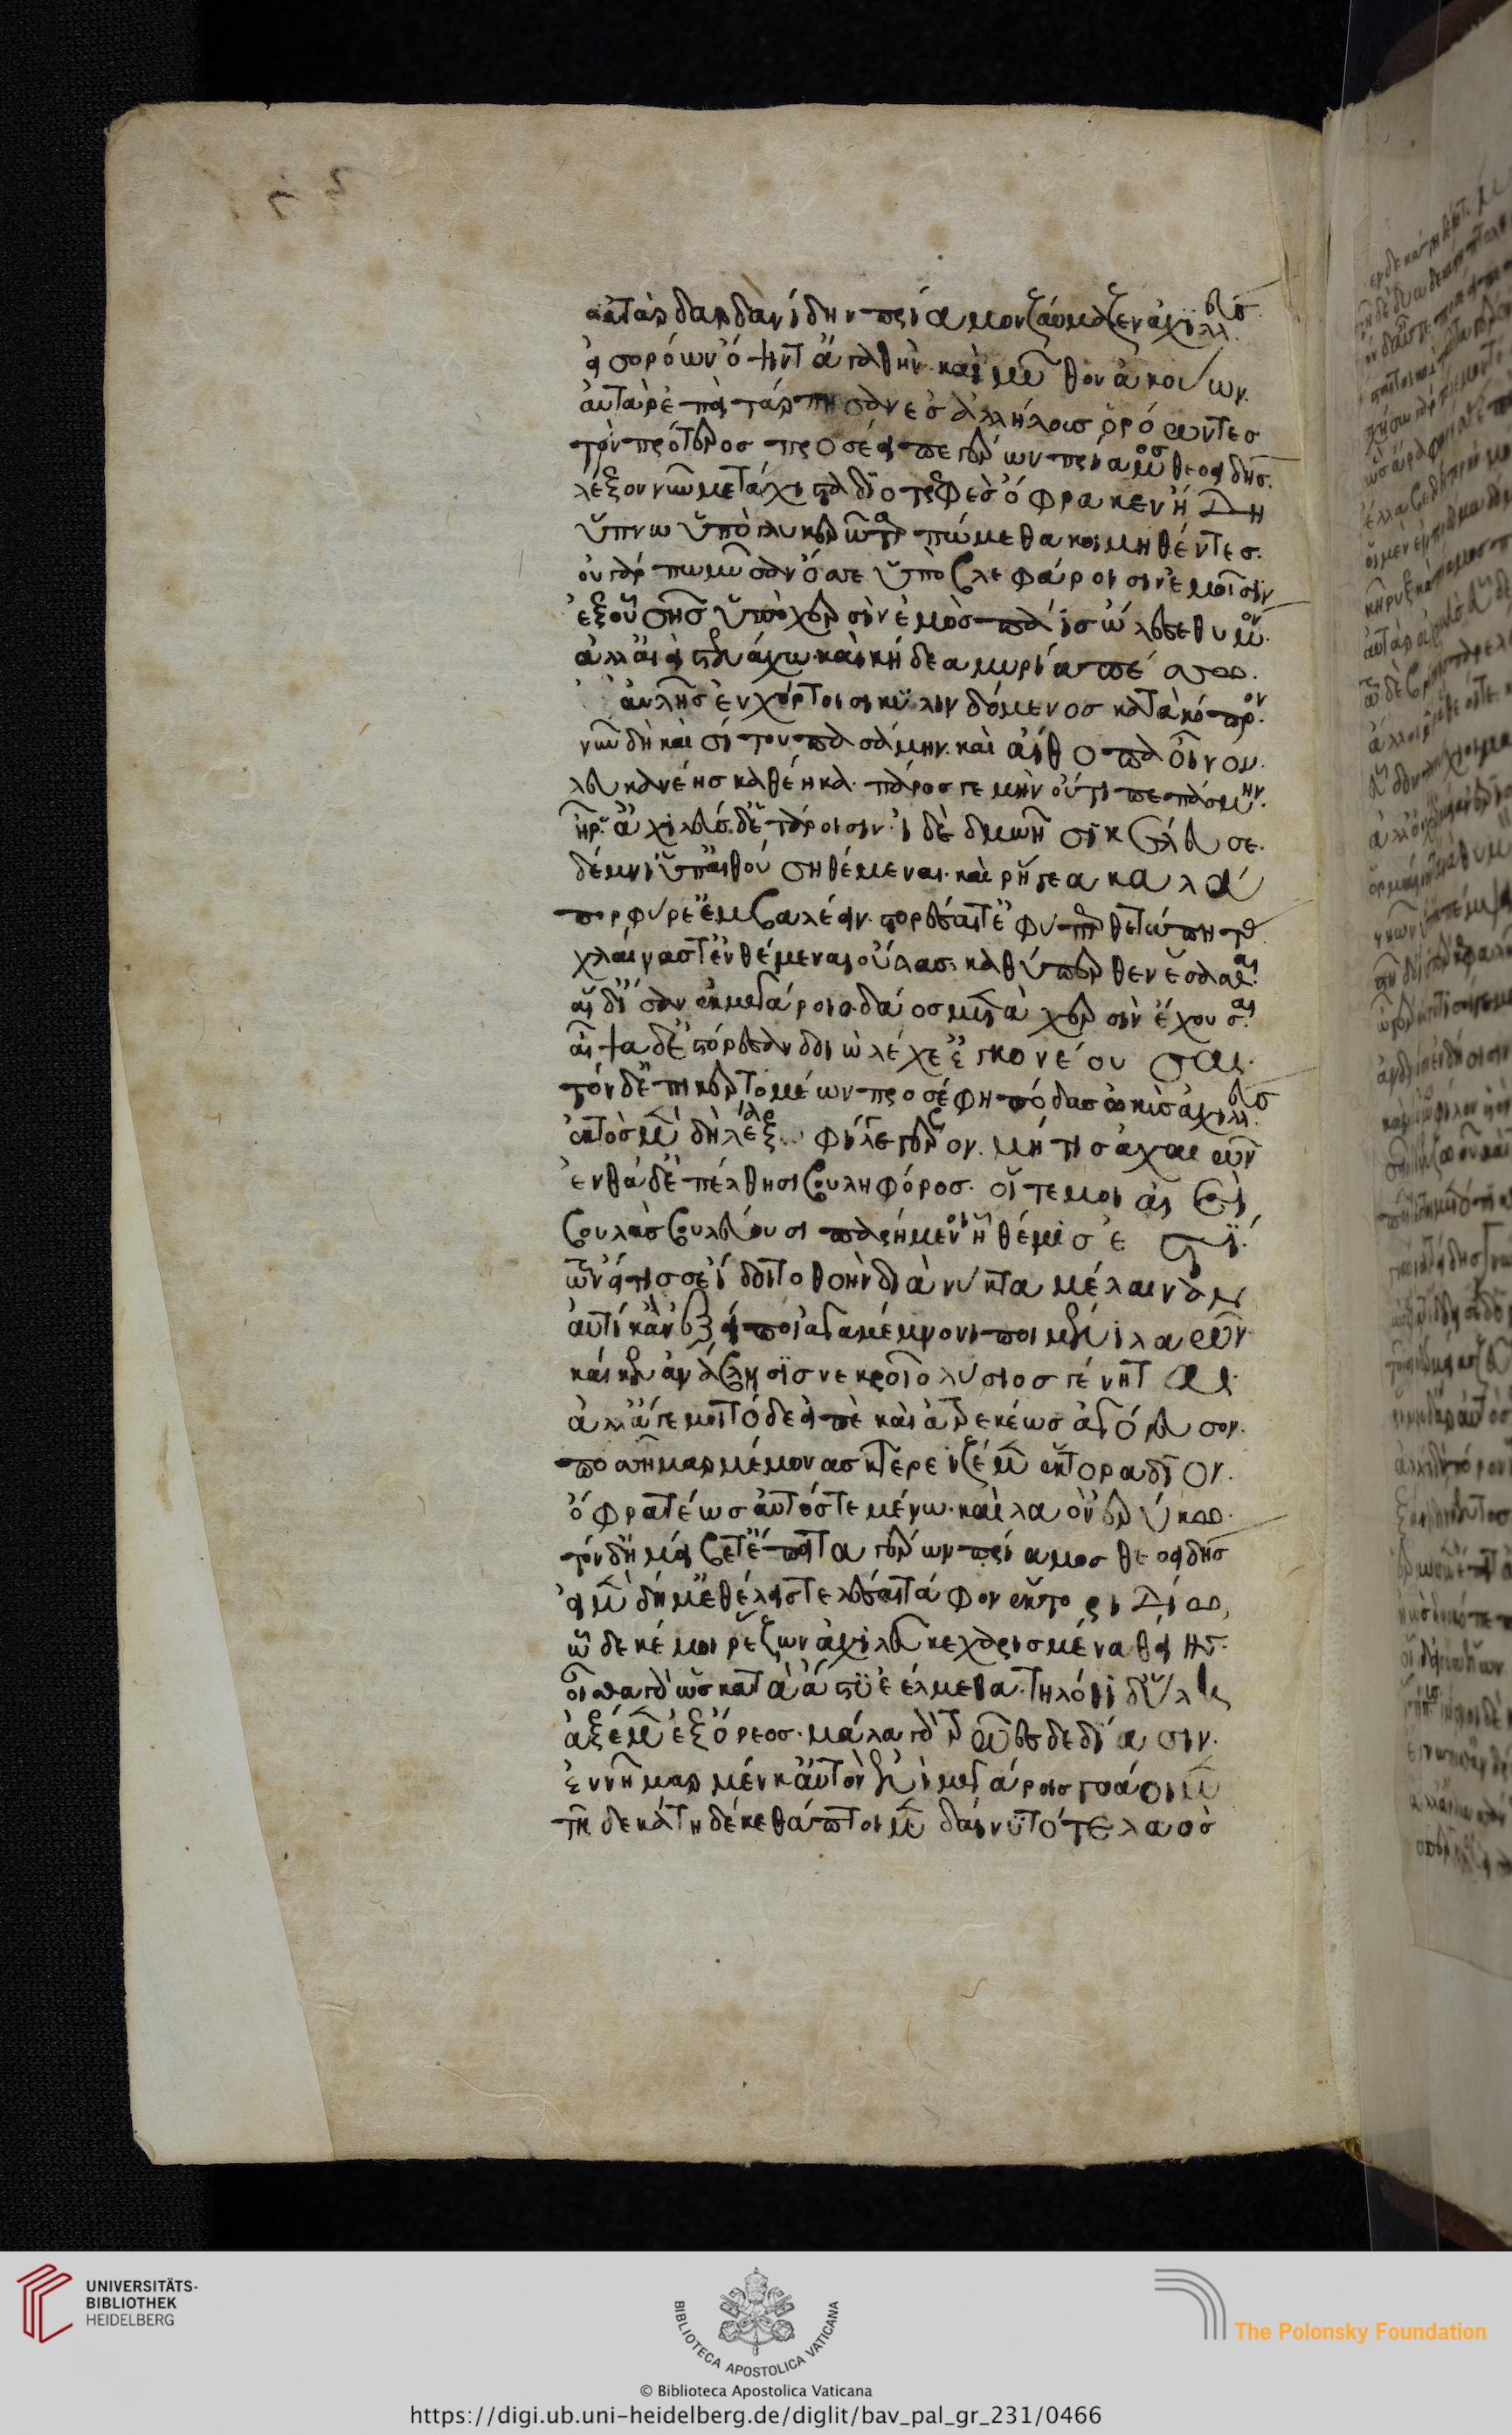 αὐτὰρ δαρδανίδην πρίαμον θαύμαζεν ἀχιλλεὺσ
εἰσορόων ὄψιντ' ἀγαθήν· καὶ μῦθον ἀκούων.
αὐτὰρ ἐπεὶ τάρπησαν ἐσ ἀλλήλουσ ὁρόωντεσ
τὸν πρότεροσ προσέειπε γέρων πρίαμοσ θεοειδήσ·
λέξον νῦν με τάχιστα διοτρεφὲσ ὄφρα κεν ἤδη
ὕπνω ὕπο γλυκερῶ ταρπώμεθα κοιμηθέντεσ.
οὐ γάρ πω μῦσαν ὄσσε ὑπὸ βλεφάροισιν ἐμοῖσιν
ἐξ οὗ σῆσ ὑπὸ χερσὶν ἐμὸσ πάισ ὤλεσε θυμόν·
ἀλλ' αἰεὶ στενάχω· καὶ κήδεα μυρία πέσσω.
αὐλῆσ ἐν χόρτοισι κυλινδόμενοσ κατὰ κόπρον·
νῦν δὴ καὶ σίτου πασάμην· καὶ αἴθοπα οἶνον·
λευκανέησ καθέηκα· πάροσ γε μὴν οὔτι πεπάσμην·
ἦ ρ' ἀχιλεύσ· δ' ἑτάροισιν· ἰδὲ δμωῆσι κέλευσε·
δέμνι' ὑπ' αἰθούση θέμεναι· καὶ ῥήγεα καλὰ
πορφύρε' ἐμβαλέειν· στορέσαι τ' ἐφύπερθε τάπητασ
χλαίνασ τ' ἐνθέμεναι οὔλασ· καθύπερθεν ἕσασθαι·
αἱ δ' ἴσαν ἐκ μεγάροιο δάοσ μετὰ χερσὶν ἔχουσαι·
αἶψα δὲ στόρεσαν δοιὼ λέχε' ἐγκονέουσαι·
τὸν δ' ἐπικερτομέων προσέφη πόδασ ὠκὺσ ἀχιλλεύσ
ἐκτὸσ μὲν δὴ λέξ φίλε γέρον. μή τισ ἀχαιῶν
ἐνθάδ' ἐπέλθησι βουληφόροσ· οἵ τέ μοι αἰεὶ
βουλὰσ βουλεύουσι παρήμενοι ἣ θέμισ ἐστί·
τῶν εἴ τίσ σε ἴδοιτο θοὴν διὰ νύκτα μέλαιναν
αὐτίκ' ἂν ἐξείποι ἀγαμέμνονι ποιμένι λαῶν·
καί κεν ἀνάβλησισ νεκροῖο λύσιοσ γένηται·
ἀλλ' ἄγε μοι τόδε εἰπὲ καὶ ἀτρεκέωσ ἀγόρευσον·
ποσσῆμαρ μέμονασ κτερειζέμεν ἕκτορα δῖον·
ὄφρα τέωσ αὐτόσ τε μένω· καὶ λαὸν ἐρύκω·
τὸν δ' ἠμείβετ' ἔπειτα γέρων πρίαμοσ θεοειδήσ
εἰ μὲν δή μ' ἐθέλεισ τελέσαι τάφον ἕκτορι δίω,
ὧδέ κέ μοι ῥέζων ἀχιλεῦ κεχαρισμένα θείησ·
οἶσθα γὰρ ὡσ κατὰ ἄστυ ἐέλμεθα· τηλόθι δ' ὕλη
ἀξέμεν ἐξ ὄρεοσ· μάλα γὰρ τρῶεσ δεδίασιν·
ἐννῆμαρ μέν κ' αὐτὸν ἐνὶ μεγάροισ γοάοιμεν
τῆ δεκάτη δέ κε θάπτοιμεν δαινῦτό τε λαὸσ
UNIVERSITÄTS-
BIBLIOTHEK
HEIDELBERG
BIBLIOTECA APOSTOLICA VATICANA
The Polonsky Foundation
© Biblioteca Apostolica Vaticana
https://digi.ub.uni-heidelberg.de/diglit/bav_pal_gr_231/0466